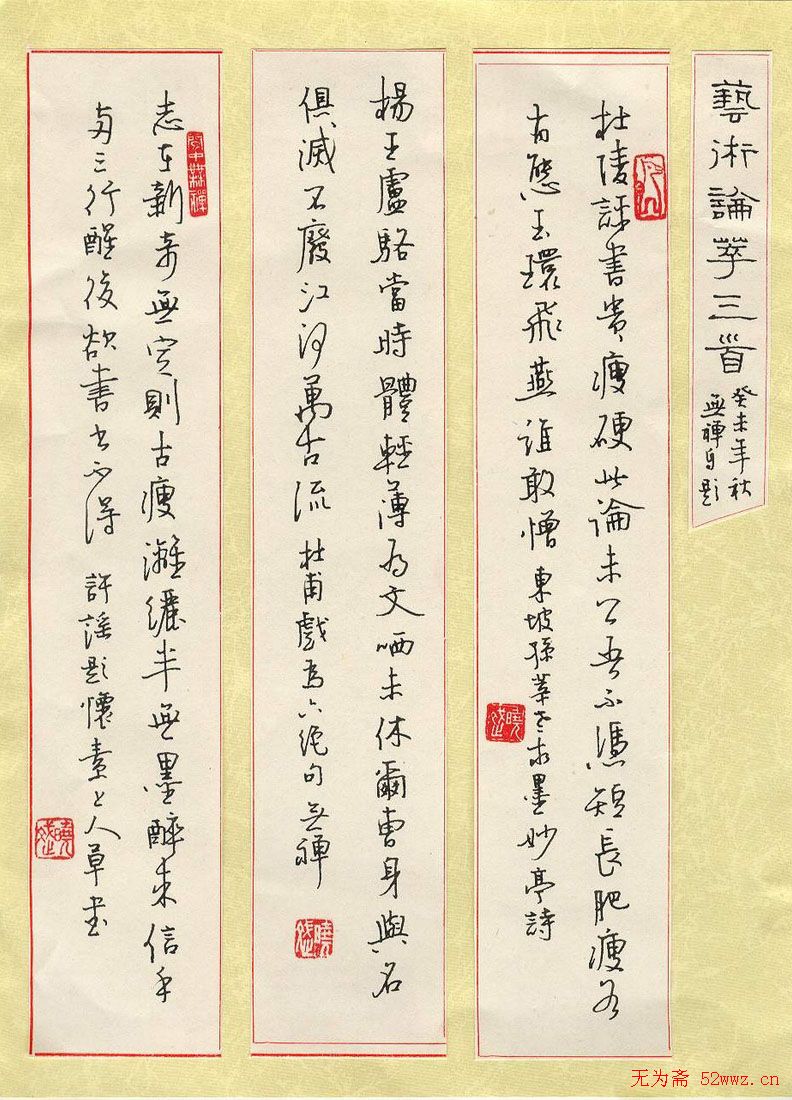 藝術論萃三首
癸未年秋
無禪自題
杜陵評書貴瘦硬此論未公吾不憑短長肥瘦各
有態玉環飛燕誰敢憎 東坡孫莘老求墨妙亭詩
楊王盧駱當時體輕薄為文哂未休爾曹身與名
俱滅不廢江河萬古流 杜甫戲為六絕句 无禪
志在新奇無定則古瘦灕纚半無墨醉來信手
兩三行醒後卻書書不得 許謠題懷素上人草書
无为斋 52wwz.cn